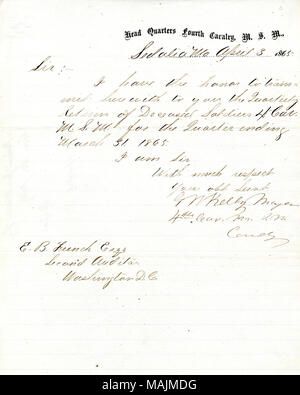 Head Quarters Fourth Cavalry, M. S. M.,
Sedalia Mo April 3 1865.
Sir :-
I have the honor to trans-
mit herewith to you the Quarterly
Return of Deceased Soldiers 4 Cav.
M S M for the Quarter ending
March 31 1865.
I am Sir
With much respect
Your obt Servt
G W Kelly Major
4th Cav. M. S. M
Comdg
E. B French Esqr
Second Auditor
Washington D.C
alamy
Image ID: MAJMDG
www.alamy.com